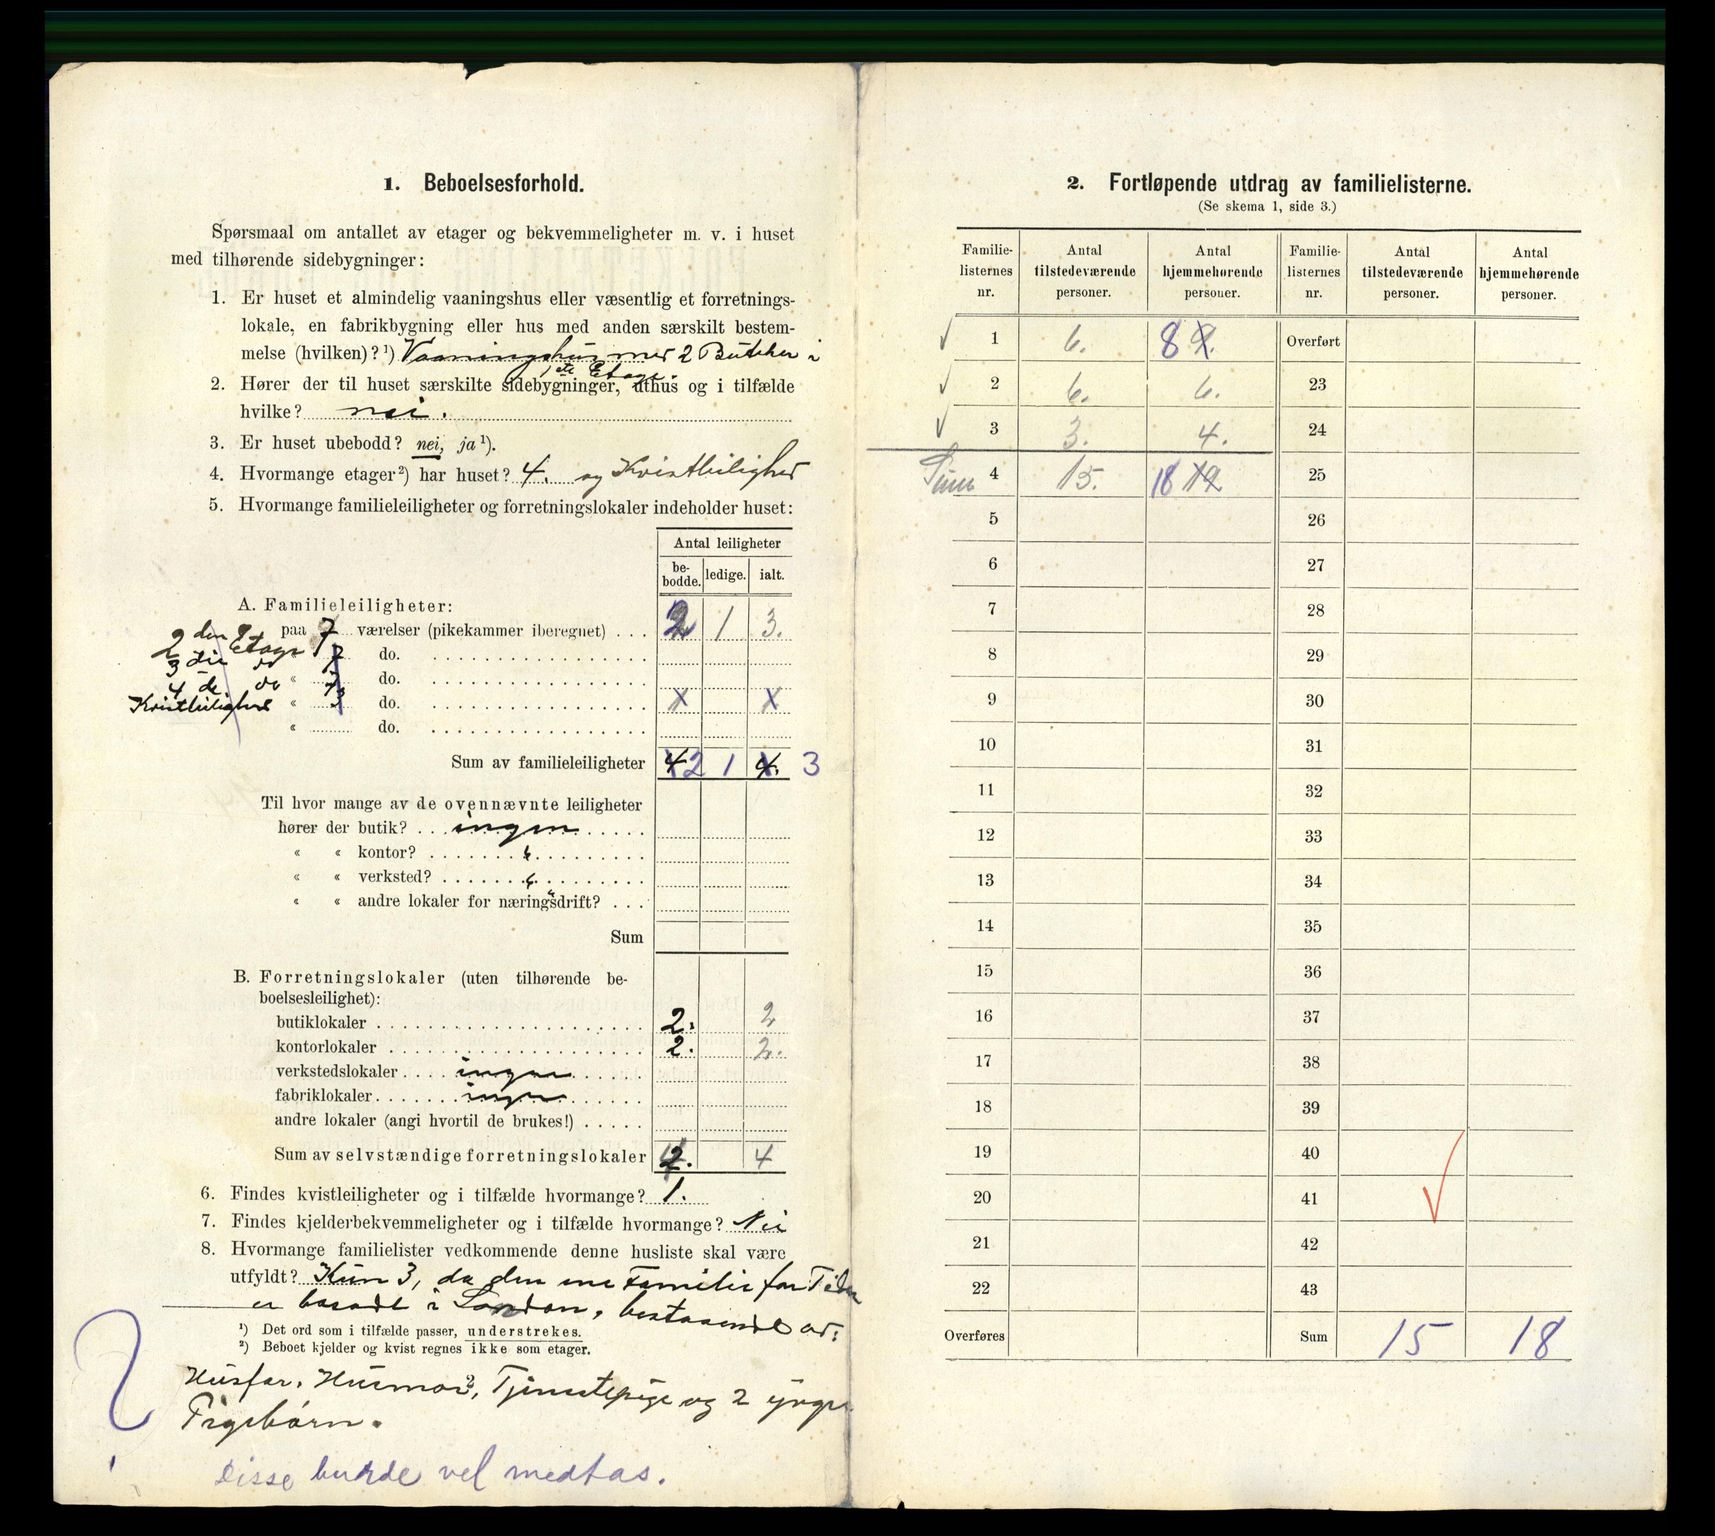 1. Beboelsesforhold.
Spørsmaal om antallet av etager og bekvemmeligheter m. v. i huset
med tilhørende sidebygninger:
1. Er huset et almindelig vaaningshus eller væsentlig et forretnings-
lokale, en fabrikbygning eller hus med anden særskilt bestem-
melse (hvilken)?¹) Vaaningshus med 2 Butiker i
1ste Etage.
2. Hører der til huset særskilte sidebygninger, uthus og i tilfælde
hvilke? nei.
3. Er huset ubebodd? nei, ja¹).
4. Hvormange etager²) har huset? 4. og Kvistleilighed
5. Hvormange familieleiligheter og forretningslokaler indeholder huset:
Antal leiligheter
be-
bodde. ledige. ialt.
A. Familieleiligheter:
2den Etage paa 7 værelser (pikekammer iberegnet) . . . 2 1 3.
3die do « 7 do.
4de do « 7 do.
Kvistleilighed « 3 do. x x
« do.
Sum av familieleiligheter 4 2 1 4. 3
Til hvor mange av de ovennævnte leiligheter
hører der butik? ingen
« « kontor? "
« « verksted? "
« « andre lokaler for næringsdrift? "
Sum
B. Forretningslokaler (uten tilhørende be-
boelsesleilighet):
butiklokaler 2. 2
kontorlokaler 2. 2.
verkstedslokaler ingen
fabriklokaler ingen
andre lokaler (angi hvortil de brukes!)
Sum av selvstændige forretningslokaler 2. 4
6. Findes kvistleiligheter og i tilfælde hvormange? 1.
7. Findes kjelderbekvemmeligheter og i tilfælde hvormange? Nei
8. Hvormange familielister vedkommende denne husliste skal være
utfyldt? Kun 3, da den ene Familie for Tiden
er bosadt i London, bestaaende av:
¹) Det ord som i tilfælde passer, understrekes.
²) Beboet kjelder og kvist regnes ikke som etager.
Husfar, Husmor, Tjenestepige og 2 yngre
Pigebørn.
Disse burde vel medtas.
2. Fortløpende utdrag av familielisterne.
(Se skema 1, side 3.)
Familie-
listernes
nr. Antal
tilstedeværende
personer. Antal
hjemmehørende
personer. Familie-
listernes
nr. Antal
tilstedeværende
personer. Antal
hjemmehørende
personer.
✓ 1 6. 8 Overført
✓ 2 6. 6. 23
✓ 3 3. 4. 24
Sum 4 15. 18 19 25
5 26
6 27
7 28
8 29
9 30
10 31
11 32
12 33
13 34
14 35
15 36
16 37
17 38
18 39
19 40
20 41
21 42
22 43
Overføres Sum 15 18